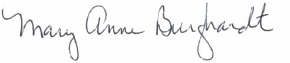 Mary Anne Burghardt